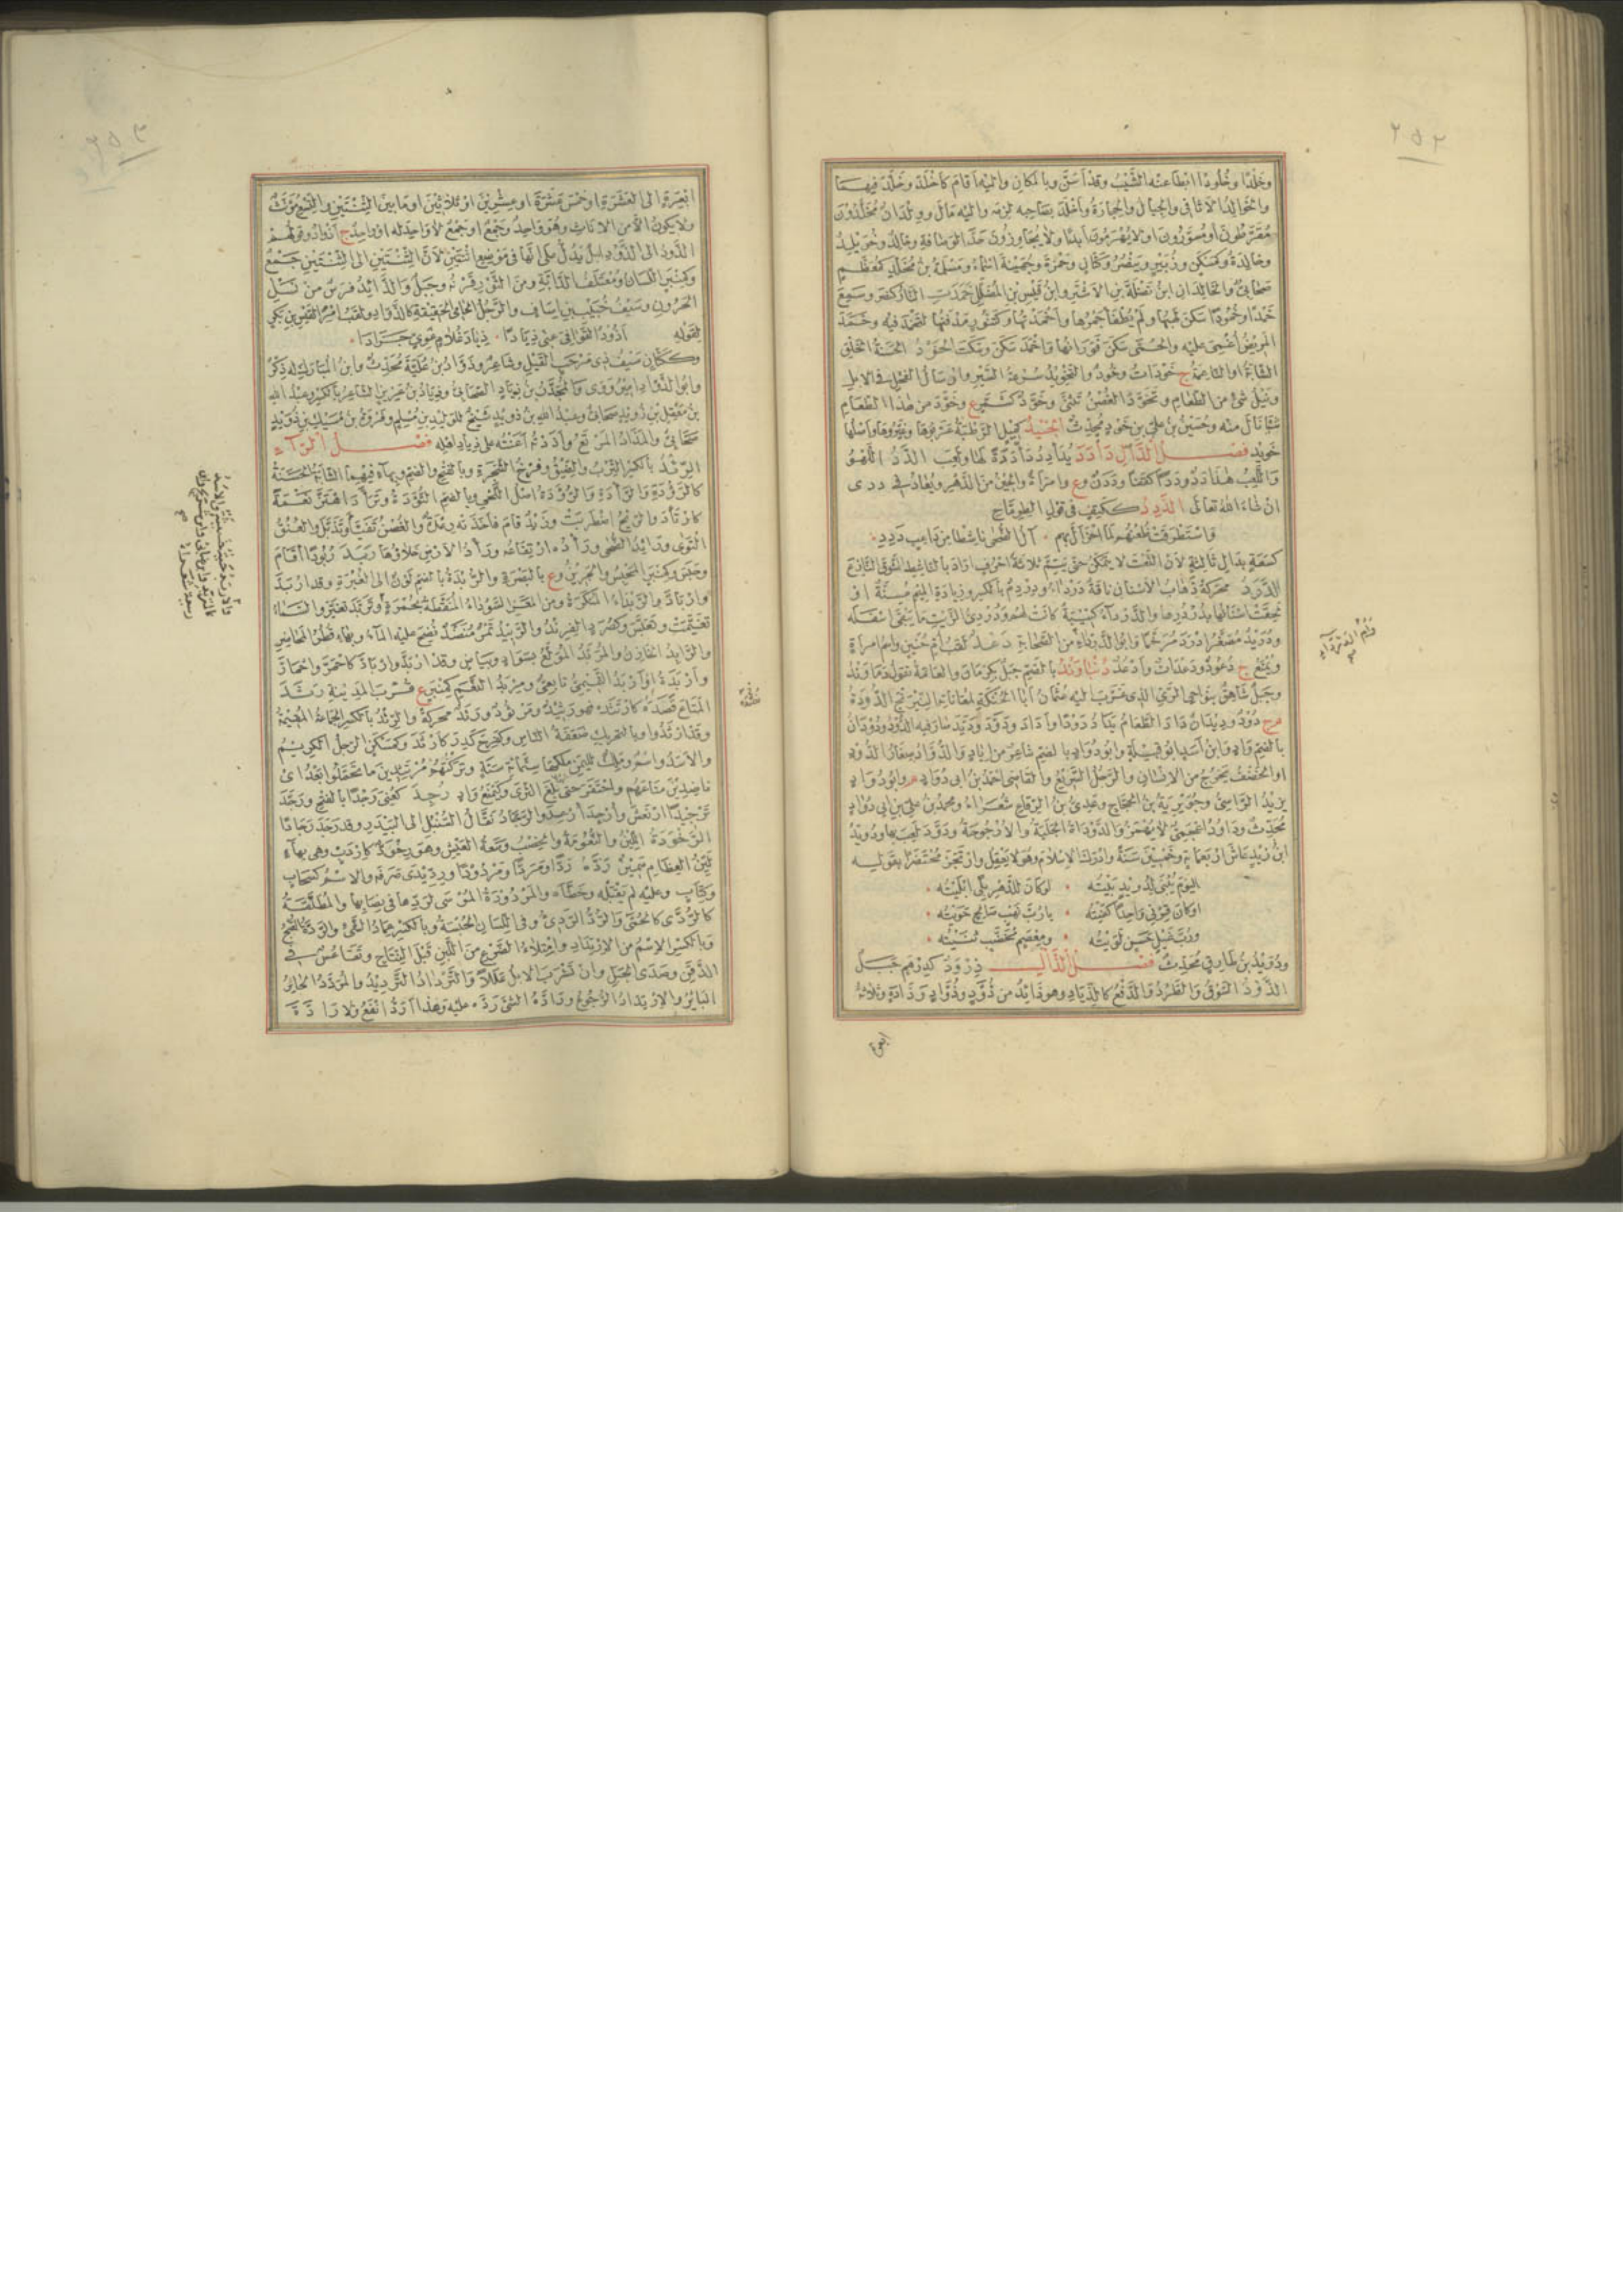 ٢٥٢
وخلدا وخلودا ابطأ عنه الشيب وقد اسن وبالمكان واليه اقام كاخلد وخلد فيهما
والخوالد الاثافي والجبال والحجارة واخلد بصاحبه لزمه واليه مال وولدان مخلدون
مقرطون او مسورون او لا يهرمون ابدا ولا يجاوزون حد الوصافة وخالد وخويلد
وخالدة وكمسكن وزبير وينصر وكتان وحمزة وجهينة اسماء ومسلمة بن مخلد كمعظم
صحابي والخالدان ابن نضلة بن الاشتر وابن قيس بن المضلل خمدت النار كنصر وسمع
خمدا وخمودا سكن لهبها ولم يطفأ جمرها واخمدتها وكتنور مدفنها لتخمد فيه وخمد
المريض اغمي عليه والحمى سكن فورانها واخمد سكن وسكت الخود الحسنة الخلق
الشابة او الناعمة ج خودات وخود والتخويد سرعة السير وارسال الفحل في الابل
ونيل شيء من الطعام وتخود الغصن تثنى وخود كشمر ع وخود من هذا الطعام
شيأ نال منه وحسين بن علي بن خود محدث الخنيد
خويد فصل الدال دأدد يدأدد دأددة لها ولعب الدد اللهو
واللعب هذا دد وددا كقفا وددن وع وامرأة والحين من الدهر ويعاد في ددى
ان شاء الله تعالى الددد ككتف في قول الطرماح
واستطرقت ظعنهم لما احزأل بهم • آل الضحى ناشطا من داعب ددد
كسعه بدال ثالثة لان النعت لا يتمكن حتى يتم ثلاثة احرف اراد بالناشط الشوق النازع
الدرد محركة ذهاب الاسنان ناقة درداء ودردم بالكسر وزيادة الميم مسنة او
لحقت اسنانها بدردرها والدرداء كتيبة كانت لهم ودردي الزيت ما يبقى اسفله
ودريد مصغر ادرد مرخما وابو الدرداء من الصحابة دعد لقب ام حنين واسم امرأة
ويجمع ج دعود ودعدات وادعد دنباوند بالضم جبل بكرمان والعامة تقول دماوند
وجبل شاهق بنواحي الري الذي غرب اليه عثمان
ج دود وديدان داد الطعام يداد دودا واداد ودود وديد صار فيه الدود ودودان
بالضم واد وابن اسد ابو قبيلة وابو دواد بالضم شاعر من اياد والدواد صغار الدود
او الخضف يخرج من الانسان والرجل السريع والقاضي احمد بن ابي دواد م وابو دواد
يزيد الرواسي وجويرية بن الحجاج وعدي بن الرقاع شعراء ومحمد بن علي بن ابي دواد
محدث وداود اعجمي لا يهمز والدوداة الجلبة والارجوحة ودود لعب بها ودويد
ابن زيد عاش اربعمائة وخمسين سنة وادرك الاسلام وهو لا يعقل وارتجز محتضرا بقوله
اليوم يبنى لدويد بيته • لو كان للدهر بلى ابليته •
او كان قرني واحدا كفيته • يا رب نهب صالح حويته •
ورب غيل حسن لويته • ومعصم مخضب ثنيته •
ودويد بن طارق محدث فصل الذال ذرود كدرهم جبل
الذود السوق والطرد والدفع كالذياد وهو ذائد من ذود وذواد وذادة وثلاثة
ابعرة
٢٥٣
ابعرة الى العشرة او خمس عشرة او عشرين او ثلاثين او ما بين الثنتين والتسع مؤنث
ولا يكون الا من الاناث وهو واحد وجمع او جمع لا واحد له او واحد ج اذواد وقولهم
الذود الى الذود ابل يدل على انها في موضع اثنتين لان الثنتين الى الثنتين جمع
وكمنبر اللسان ومعتلف الدابة ومن الثور قرنه وجبل والذائد فرس من نسل
الحرون وسيف خبيب بن اساف والرجل الحامي الحقيقة كالذواد ولقب امرئ القيس بن بكر
لقوله اذود القوافي عني ذيادا • ذياد غلام غوي جرادا •
وككتان سيف ذي مرحب القيل وشاعر وذواد بن علبة محدث وابن المبارك له ذكر
وابو الذواد والمجذر بن ذياد الصحابي وذياد بن عزيز الشاعر بالكسر وعبد الله
بن مغفل بن ذويد صحابي وعبد الله بن ذويد شيخ للوليد بن مسلم وفروة بن مسيك بن ذويد
صحابي والمذاد المرتع واذدته اعنته على ذياد اهله فصل الراء
الرئد بالكسر الترب والضيق وفرخ الشجرة وبالفتح والضم وبهاء فيهما الشابة الحسنة
كالرؤدة والرأدة والرؤدة اصل اللحي وبالضم التؤدة وترأد اهتز نعمة
كارتأد والريح اضطربت وزيد قام فاخذته رعدة والغصن تفيأ وتذبل والعنق
التوى ورائد الضحى ورأده ارتفاعه ورأد الارض خلاؤها ربد ربودا اقام
وحبس وكمنبر المحبس والجرين وع بالبصرة والربدة بالضم لون الى الغبرة وقد اربد
واربأد والربداء المنكرة ومن المعز السوداء المنقطة بحمرة وتربد تغير والسماء
تغيمت وتعبس وكصرد الفرند والربيد تمر منضد نضح عليه الماء وبهاء قمطر المحاضر
والرابد الخازن والمربد المولع بسواد وبياض وقد اربد واربأد كاحمر واحمار
واربدة او اربد التميمي تابعي ومربد النعم كمنبر ع قرب المدينة رثد
المتاع نضده كارتثده فهو رثيد ومرثود ورثد محركة والرثد بالكسر الجماعة المقيمة
وقد ارثدوا وبالتحريك ضعفة الناس وكفرح كدر كارثد وكمسكن الرجل الكريم
والاسد واسم وملك لليمن ملكها ستمائة سنة وتركتهم مرتثدين ما تحملوا بعد اي
ناضدين متاعهم واحتفر حتى بلغ الثرى وكيمنع واد رجد كعني رجدا بالفتح ورجد
ترجيدا ارتعش وارجد ارعد والرجاد نقال السنبل الى البيدر وقد رجد رجادا
الرخودة اللين والنعومة والخصب وسعة العيش وهو رخود كاردب وهي بهاء
لين العظام سمين رده ردا ومردا ومردودا ورديدى صرفه والاسم كسحاب
وكتاب وعليه لم يقبله وخطأه والمردودة الموسى لردها في نصابها والمطلقة
كالردى كالحمى والرد الردي وفي اللسان الحبسة وبالكسر عماد الشيء والردة القبح
وبالكسر الاسم من الارتداد وامتلاء الضرع من اللبن قبل النتاج وتقاعس في
الذقن وصدى الجبل وان تشرب الابل عللا والترداد الترديد والمردد الحائر
البائر والارتداد الرجوع وراده الشيء رده عليه وهذا ارد انفع ولا رادة